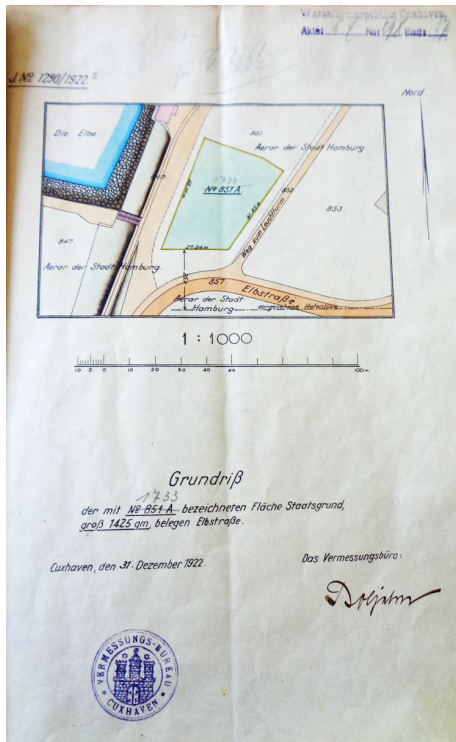 Wasserbauinspektion Cuxhaven.
Akte: No: Blatt: 37
J. No 1290/1922 S
Nord
Die Elbe.
861
Aerar der Stadt Hamburg
1733
No 851 A
852
853
Weg zum Leuchtturm
27.24 m
847
Aerar der Stadt Hamburg
857
Elbstraße
Aerar der Stadt
Hamburg
1 : 1000
10 5 0 10 20 30 40 50 100 m
Grundriß
1733
der mit No 851 A bezeichneten Fläche Staatsgrund,
groß 1425 qm, belegen Elbstraße.
Cuxhaven, den 31. Dezember 1922.
Das Vermessungsbüro:
VERMESSUNGS-BUREAU
* CUXHAVEN *